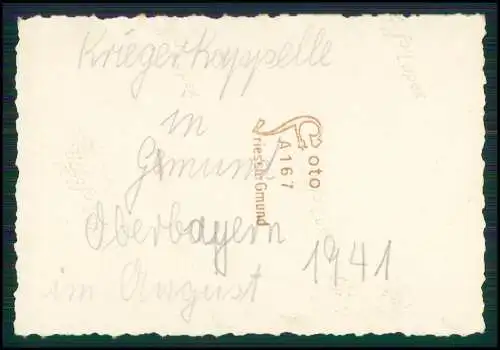 Kriegerkappelle
in
Gmund
Oberbayern
im August 1941
Foto
A167
Driesen Gmund